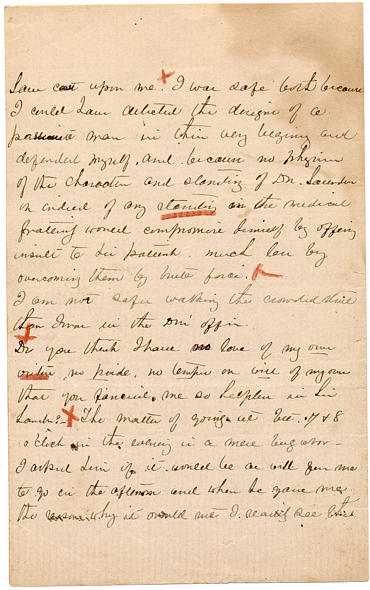 upon me. I was safe both because
I could have detected the designs of a
man in their very begining and
defended myself, and because no physician
of the character and standing of Dr.
or indeed of any standing in the medical
would compromise himself by offering
insult to his patients, much less by
overcoming them by brute force.
I am not safer walking the crowded street
than I was in the Drs' office.
Do you think I have no love of my own
no pride, no temper or will of my own
that you fancied me so helpless in his
hands? - The matter of going at bet. 7 & 8
o'clock in the evening is a mere bugaboo -
I asked him if it would be as well for me
to go in the afternoon and when he gave me
the reasons why it would not I readily see